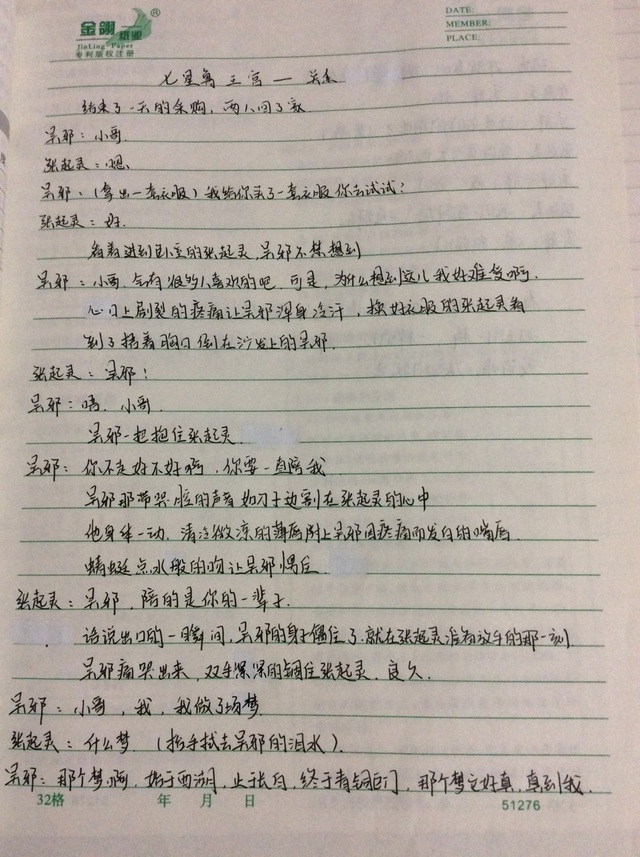 金翎纸业®
JinLing Paper
专利版权注册
DATE:
MEMBER:
PLACE:
七星鲁王宫一
结束了一天的采购，两人回了家
吴邪：小哥.
张起灵：嗯、
吴邪：（拿出一套衣服）我给你买了一套衣服你去试试？
张起灵：好.
看着进到卧室的张起灵，吴邪不禁想到
吴邪：小哥.会有很多人喜欢的吧，可是，为什么想到这儿我好难受啊.
心口上剧裂的疼痛让吴邪浑身冷汗，换好衣服的张起灵看
到了捂着胸口倒在沙发上的吴邪.
张起灵：吴邪！
吴邪：唔，小哥.
吴邪一把抱住张起灵.
吴邪：你不走好不好啊，你要一直陪我
吴邪那带哭腔的声音如刀子边割在张起灵的心中
他身体一动，清冷微凉的薄唇附上吴邪因疼痛而发白的嘴唇.
蜻蜓点水般的吻让吴邪愣住
张起灵：吴邪，陪的是你的一辈子.
话说出口的一瞬间，吴邪的身子僵住了.就在张起灵准备放手的那一刻
吴邪痛哭出来，双手深深的锢住张起灵，良久.
吴邪：小哥，我，我做了场梦
张起灵：什么梦（抬手拭去吴邪的泪水）.
吴邪：那个梦啊，始于西湖，止于长白，终于青铜巨门，那个梦它好真，真到我.
32格 年 月 日 51276